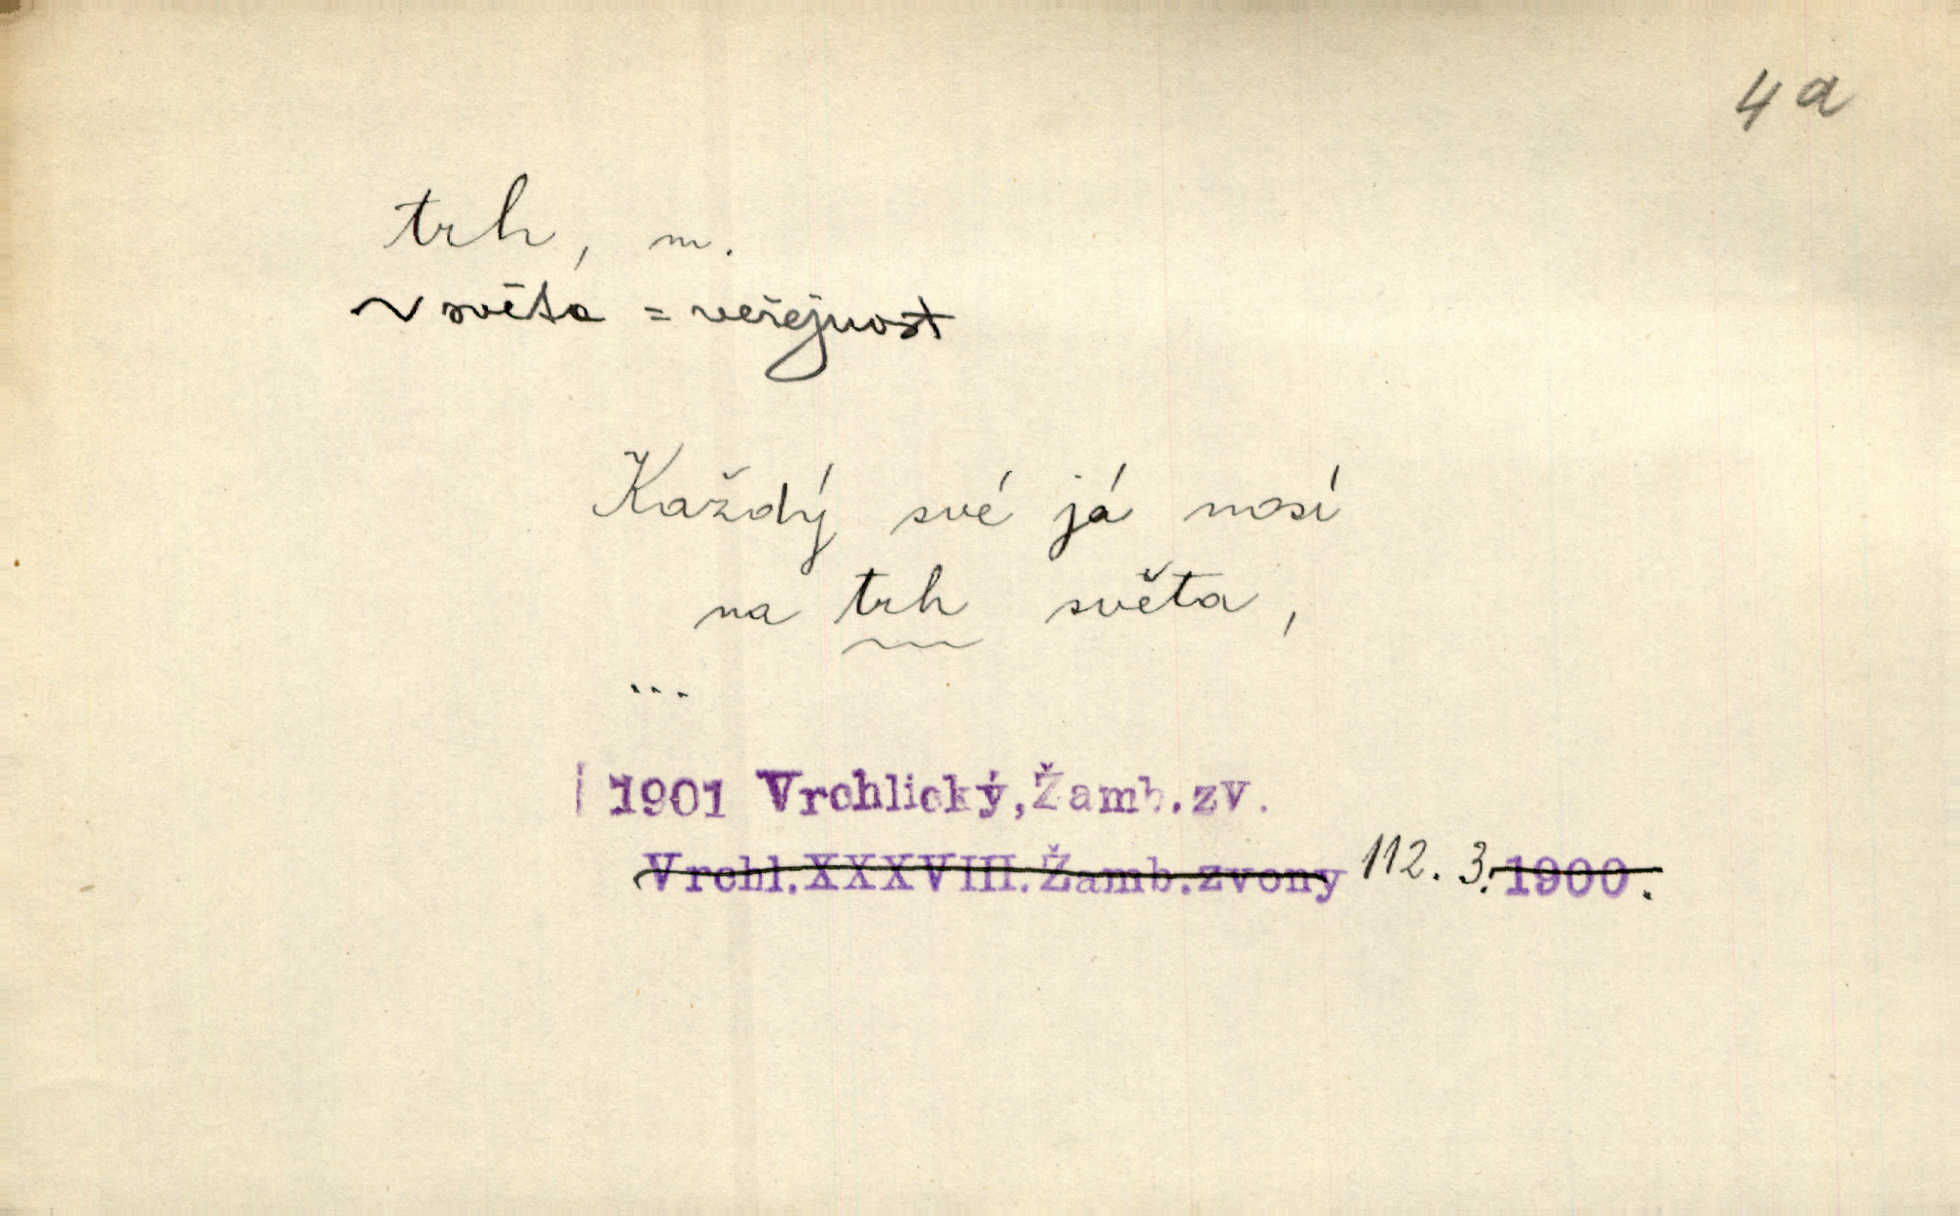 4a
trh, m.
~ světa = veřejnost
Každý své já nosí
na trh světa,
...
1901 Vrchlický, Žamb. zv.
Vrchl. XXXVIII. Žamb. zvony 112. 3. 1900.